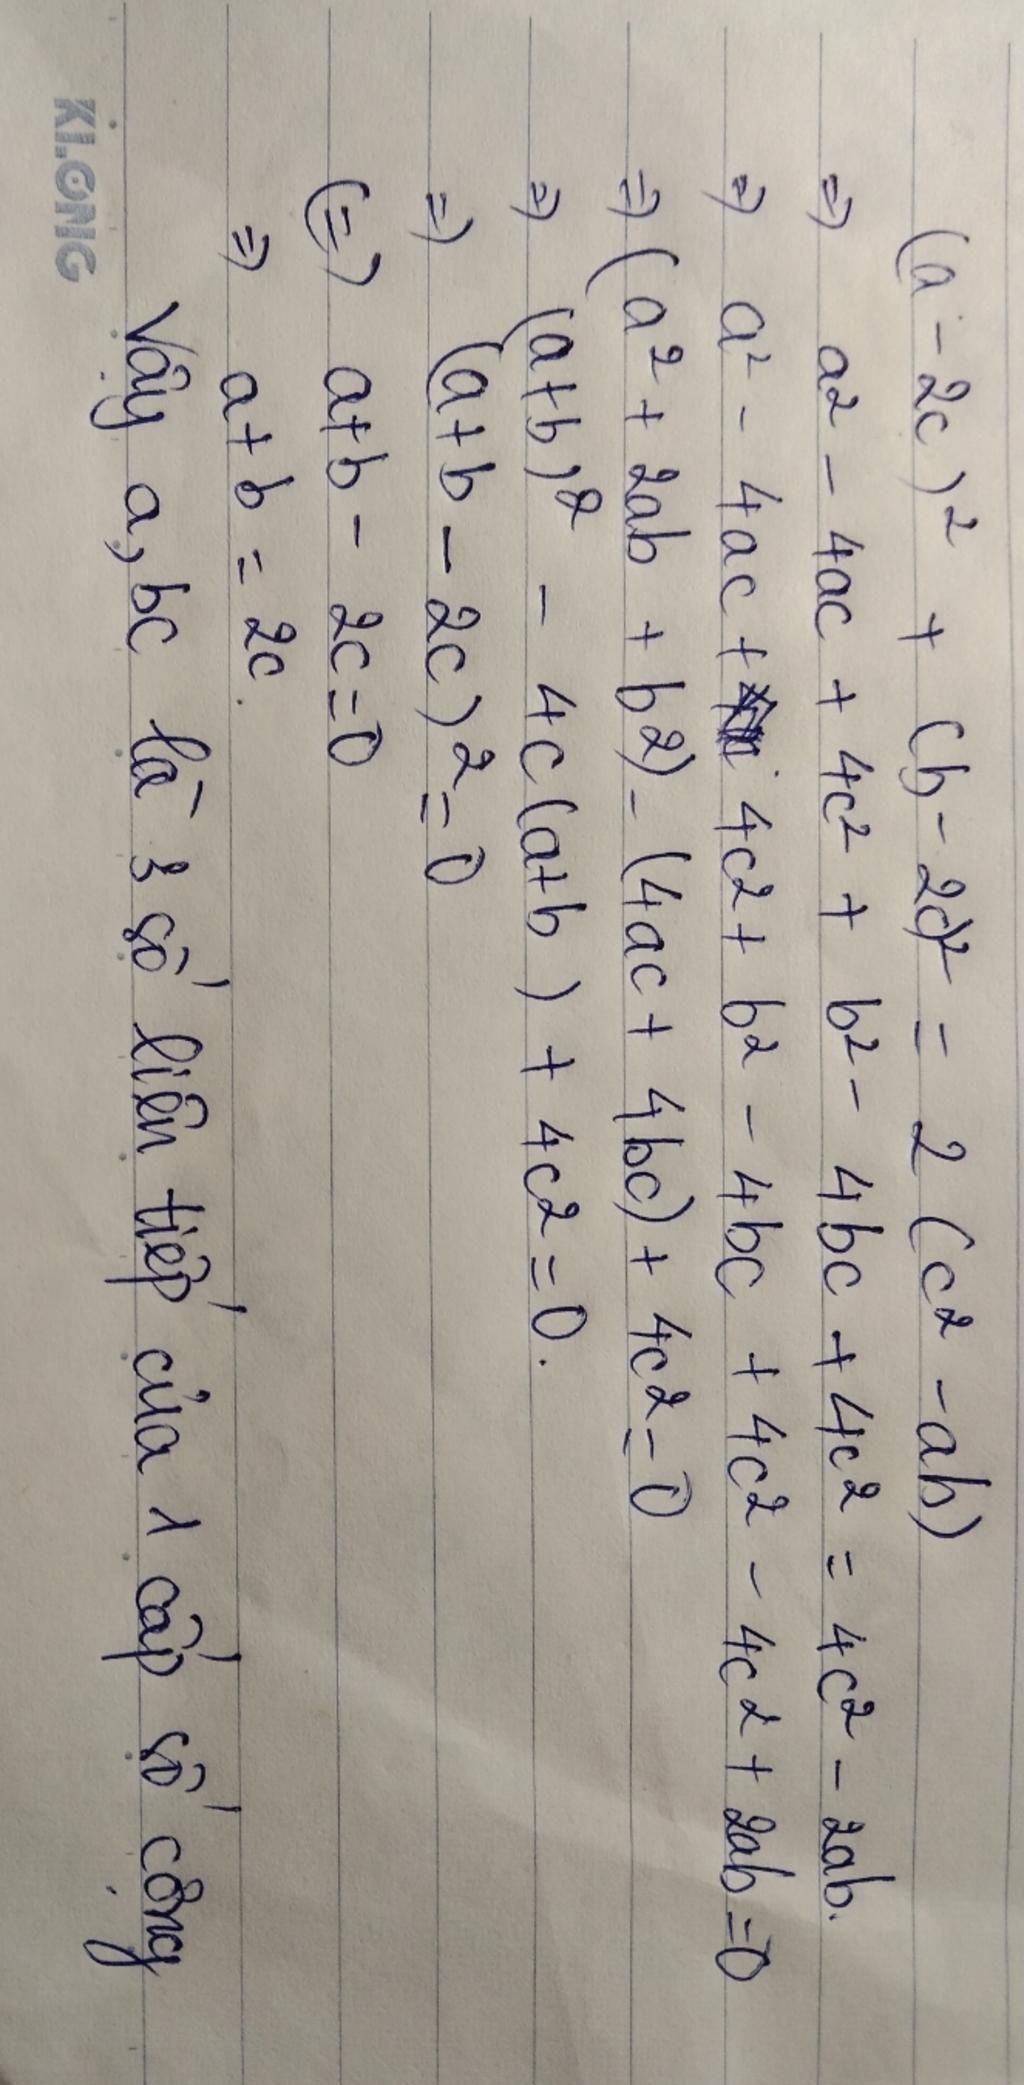 (a - 2c)² + (b - 2c)² = 2 (c² - ab)
=> a² - 4ac + 4c² + b² - 4bc + 4c² = 4c² - 2ab.
=> a² - 4ac + 4c² + b² - 4bc + 4c² - 4c² + 2ab = 0
=> (a² + 2ab + b²) - (4ac + 4bc) + 4c² = 0
=> (a+b)² - 4c(a+b) + 4c² = 0.
=> (a+b - 2c)² = 0
(=) a+b - 2c = 0
=> a+b = 2c.
Vậy a, bc là 3 số liên tiếp của 1 cấp số cộng
KLONG